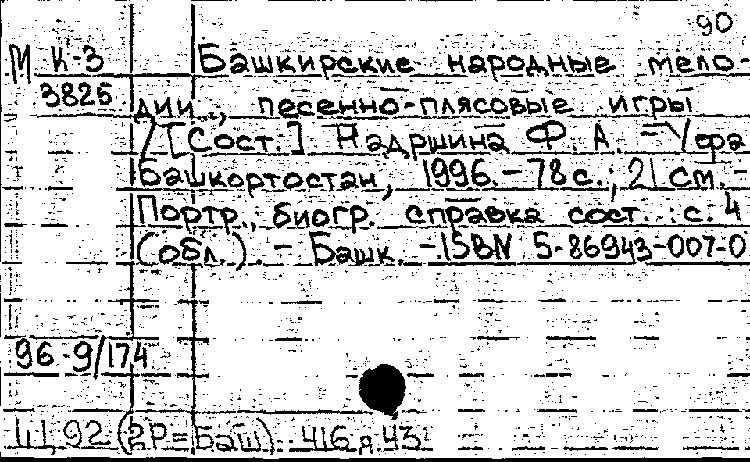 90
М К-3 Башкирские народные мело-
3826 дии.., песенно-плясовые игры
/ [Сост.] Надршина Ф. А. – Уфа
Башкортостан, 1996. – 78 с.; 21 см. –
Портр., биогр. справка сост.: с. 4
(обл.). – Башк. – ISBN 5-86943-007-0
96-9/174
Щ92(2Р=Баш). 416 я 43